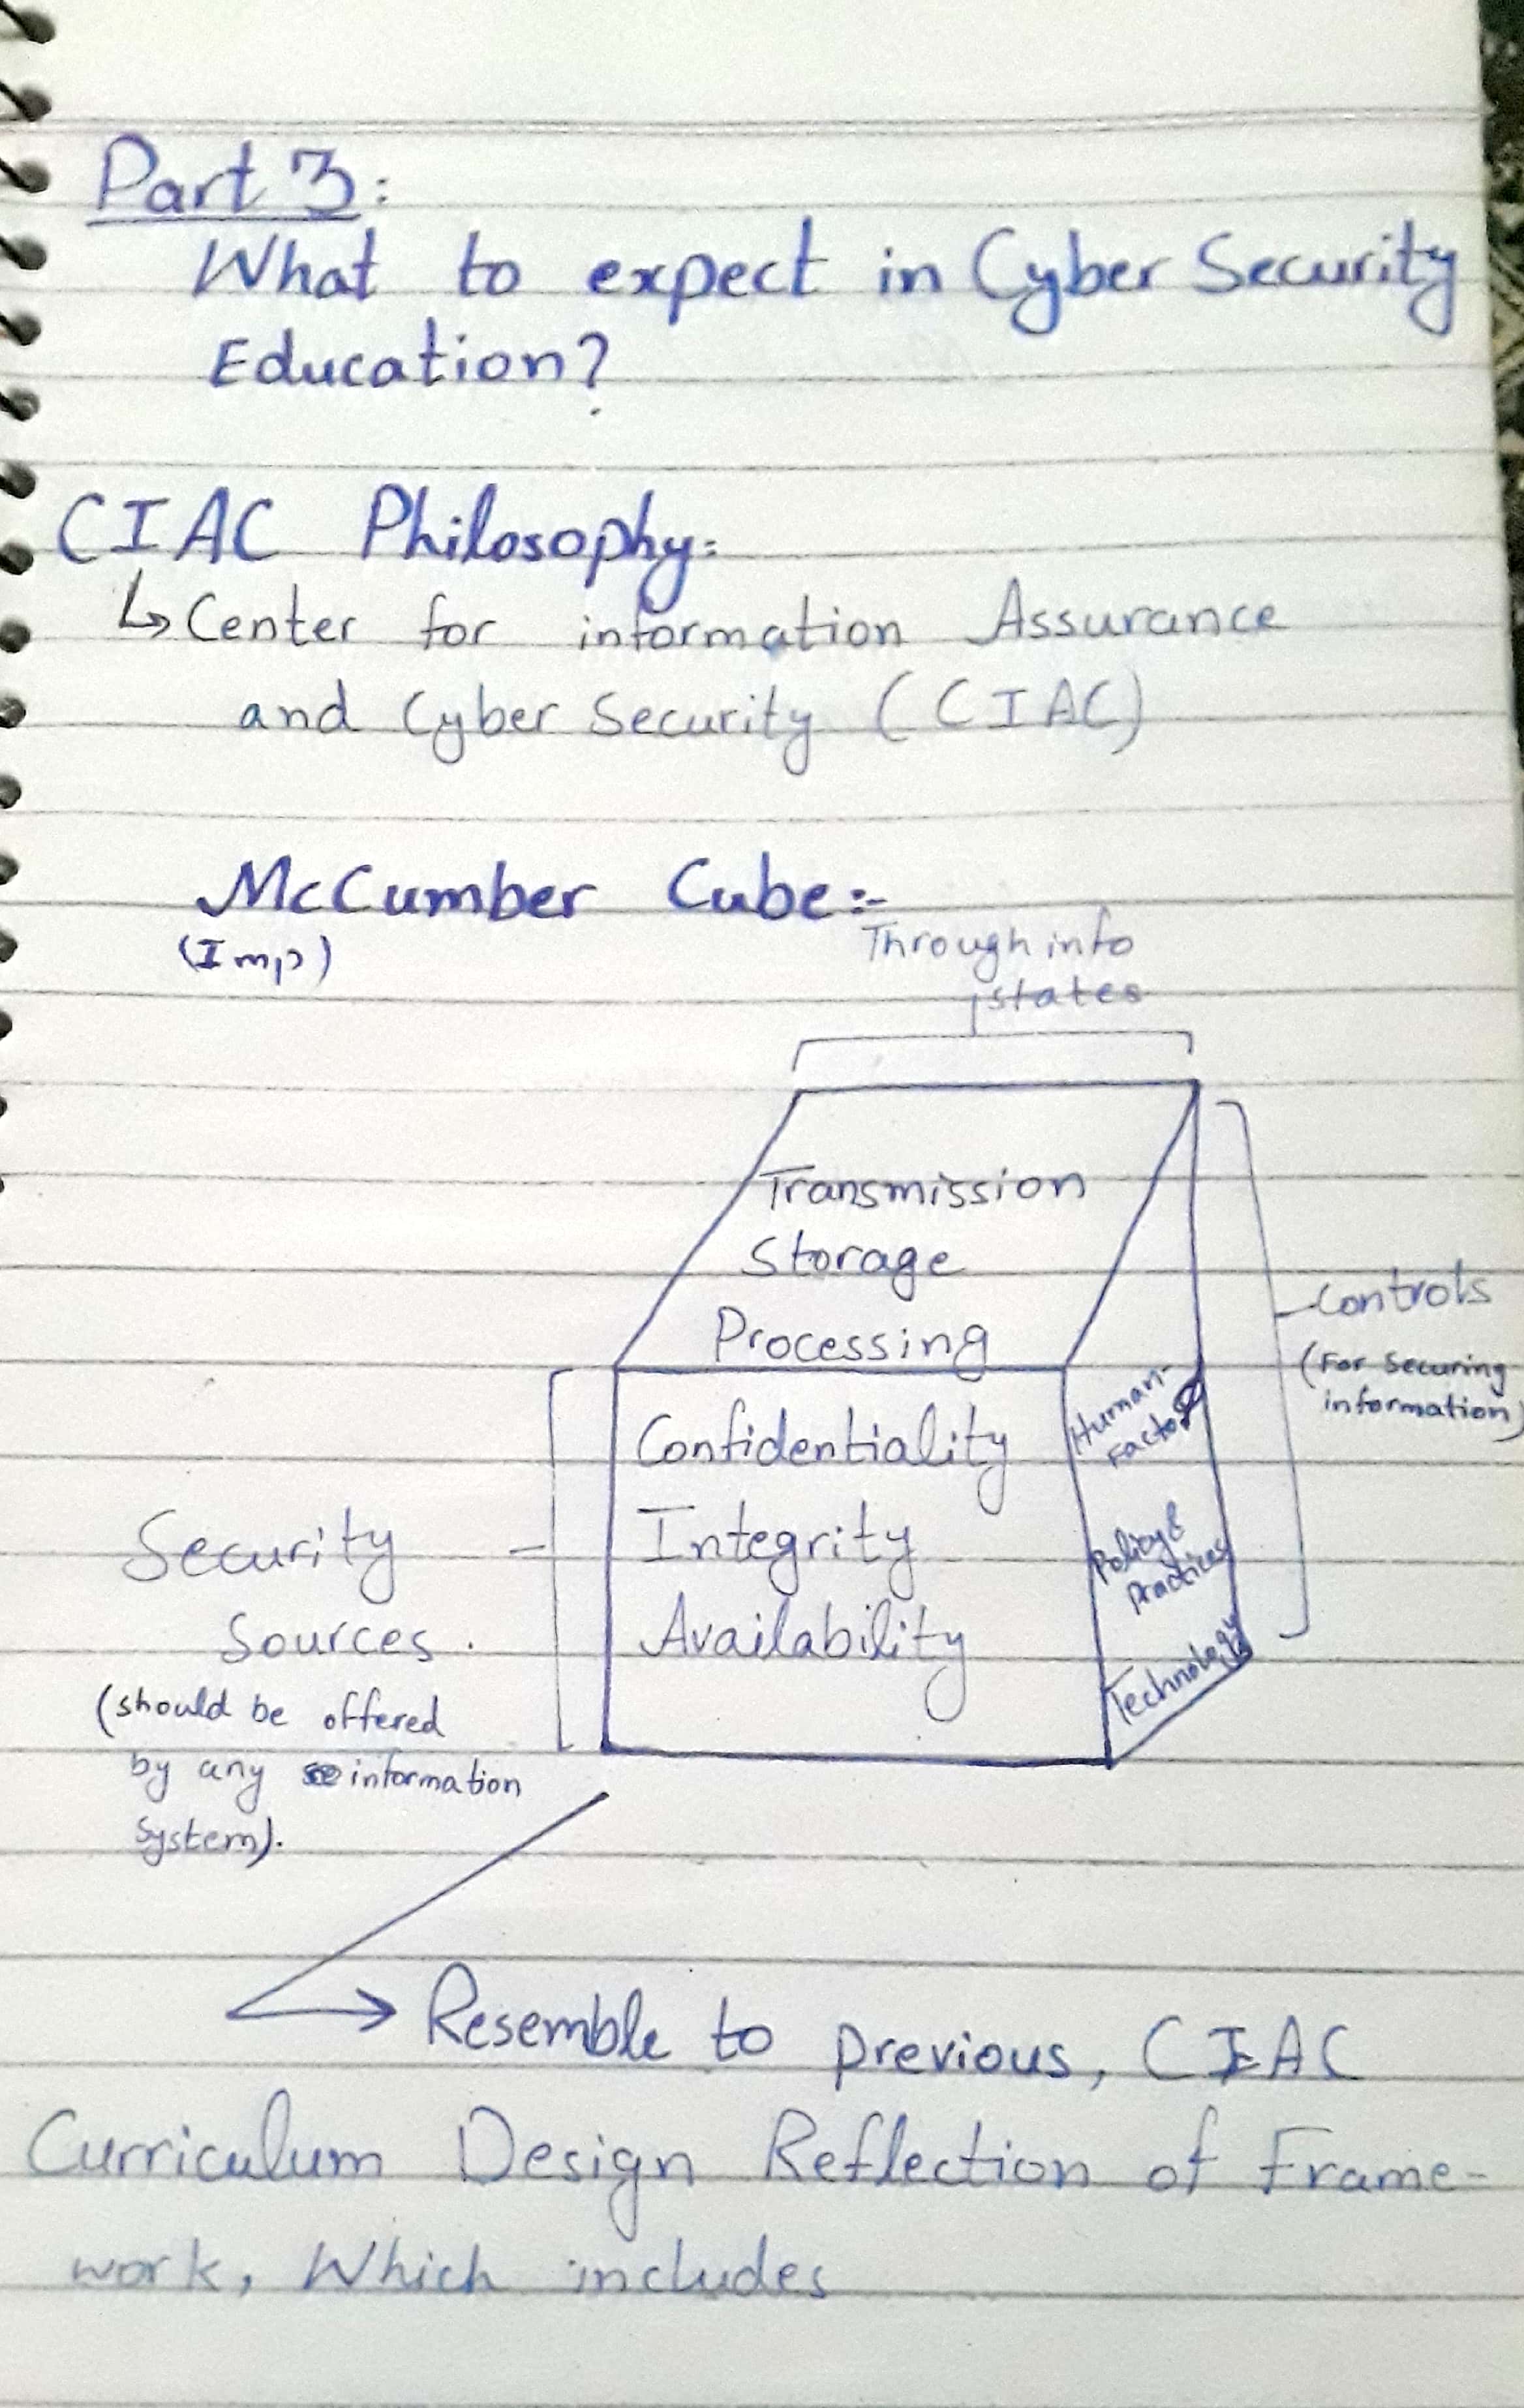 Part 3:
What to expect in Cyber Security
Education?
CIAC Philosophy:
↳ Center for information Assurance
and Cyber Security (CIAC)
McCumber Cube:-
(Imp)
Through info
states
Transmission
Storage
Processing
Controls
(For Securing
information)
Confidentiality
Integrity
Availability
Human-
Factor
Policy &
Practices
Technology
Security
Sources.
(should be offered
by any information
System).
→ Resemble to previous, CIAC
Curriculum Design Reflection of Frame-
work, Which includes